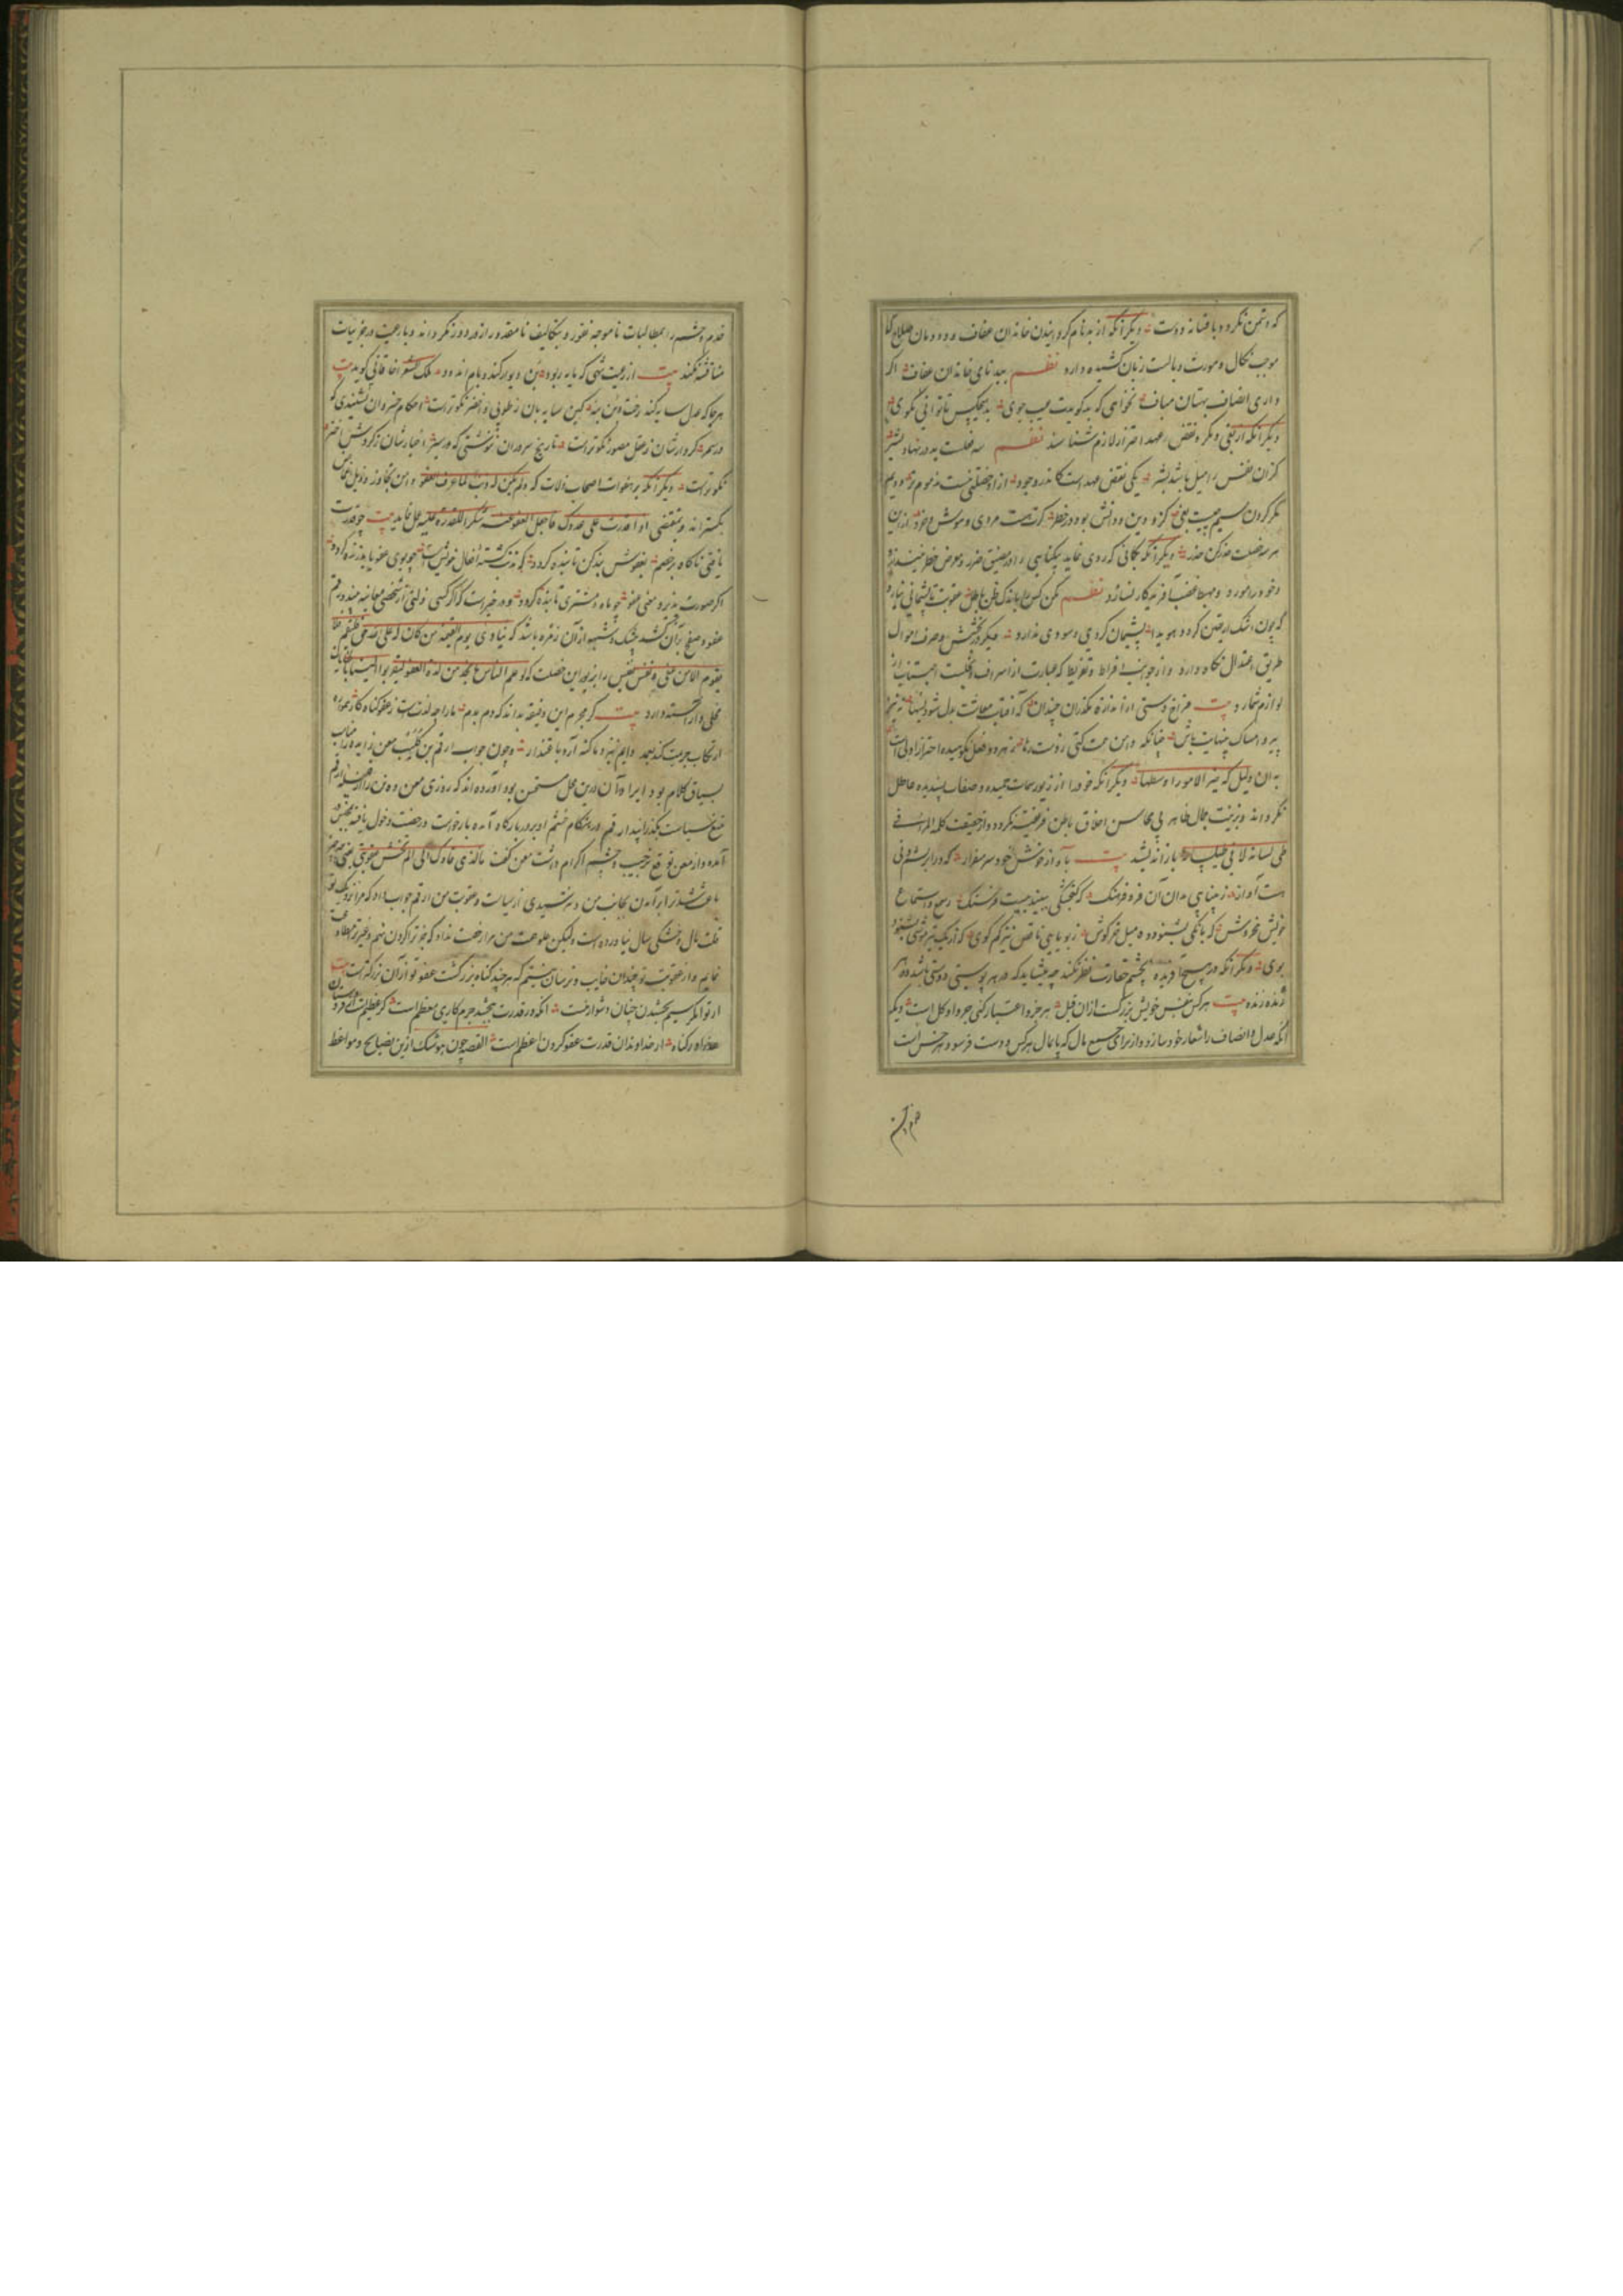 که دشمن نگردد و با فسانه دوست دیگر آنکه از بدنام گردانیدن خاندان عفاف و دودمان صلاح که
موجب نکال و مورث وبالست زبان کشیده دارد نظم ببدنامی خاندان عفاف اگر
داری انصاف بهتان مباف نخواهی که بد گویدت عیب جوی بهیچکس تا توانی نگوی
دیگر آنکه از بغی و مکر و نقض عهد احتراز لازم شناسند نظم سه خصلت بد در نهاد بشر
کزان نفس را میل باشد بشر یکی نقض عهد است کاندر وجود
مکر کردن سیم چیست بغی کزو دین و دانش بود در خطر گرت هست مردی و هوش و خرد ازین
هر سه خصلت حذر کن حذر دیگر آنکه بگمانی که روی نماید بیگناهی را در مضیق ضرر و معرض خطر
و خود را مورد و مهبط غضب آفریدگار نسازد نظم مکن کس را باندک ظن باطل عقوبت تا پشیمانی نیارد
که چون اشک یقین گردد هویدا پشیمان گردی و سودی ندارد دیگر در بخشش و صرف اموال
طریق اعتدال نگاه دارد و از جوانب افراط و تفریط که عبارت از اسراف و بخلست اجتناب از
لوازم شمارد بیت فراخ دستی از اندازه مگذران چندان که آفتاب معاشت بدل شود بسها نه نیز
پیرو امساک بینهایت باش چنانکه دامن همت کنی ز دست رها ز هر دو فعل نکوهیده احتراز اولی است
به آن دلیل که خیر الامور اوسطها دیگر آنکه خود را از زیور سمات حمیده و صفات پسندیده عاطل
نگرداند و بزینت جمال ظاهر بی محاسن اخلاق باطن فریفته نگردد و از حقیقت کلمه المرء فی
طی لسانه لا فی طیلسانه باز اندیشد بیت به آواز خوش خود سر مفراز که در ابریشم و نی
هست آواز ز بینایی مدان آن فر و فرهنگ که گنجشکی ببیند بیست فرسنگ ز سمع و استماع
خویش مخروش که بانگی بشنود ده میل خرگوش ز بویایی ناقص نیز کم گوی که از یک تیر موشی بشنود
بوی دیگر آنکه در هیچ آفریده بچشم حقارت نظر نکند چه میشاید که در هر پوستی دوستی باشد و در هر
ژنده زنده بیت هر کس بنفس خویش بزرگست ازان قبل هر جزو اعتبار کنی جزو او کل است دیگر
آنکه عدل و انصاف را شعار خود سازد و از برای جمع مال که پایمال هر کس و دست فرسود هر خس است
خدم و حشم
خدم و حشم را بمطالبات ناموجه نفور و بتکالیف نامقدور از در دور نگرداند و با رعیت در جزئیات
مناقشه نکند بیت از رعیت شهی که مایه ربود بن دیوار کند و بام اندود ملک الشعرا خاقانی گوید بیت
هر جا که عدل سایه کند رخت دین بنه کین سایه بان ز طوبی اخضر نکوتر است احکام خسروان بشنیدی که
در سمر کردارشان ز عقل مصور نکوتر است تاریخ سروران نوشتی که در سیر اخبارشان ز گردش اختر
نکوتر است دیگر آنکه بر هفوات اصحاب زلات که و لم یکن له ذنب لما عرف العفو دامن تجاوز و ذیل اغماض
بگستراند و بمقتضی اذا قدرت علی عدوک فاجعل العفو عنه شکرا للقدرة علیه عمل نماید بیت چو قدرت
یافتی ناگاه بر خصم بعفوش بنده کن تا بنده گردد که نبود کشته افعال خویشست چو بوی عفو یابد زنده گردد
اگر صورت پذیرد معنی عفو چو ماه و مشتری تابنده گردد و در خبر است که اگر کسی زلتی از شخصی معاینه بیند و رقم
عفو و صفح بر آن کشد بیشک و شبهه از آن زمره باشد که ینادی یوم القیمه من کان له علی الله حق فلیقم فلا
یقوم الا من عفی و نفس نفیس را بزیور این خصلت که لو علم الناس ما نجد من لذة العفو لتقربوا الینا بالجنایات
محلی و آراسته دارد بیت گر مجرم این دقیقه بداند که دم بدم ما را چه لذتست ز عفو گناهکار همواره
ارتکاب جریمت کند بعمد دایم بنزد ما گنه آرد باعتذار و چون جواب ارقم بن کلیب معن زایده را مناسب
سیاق کلام بود ایراد آن درین محل مستحسن بود آورده اند که روزی معن
تیغ سیاست بگذرانید ارقم در هنگام خشم او بر در بارگاه آمده بار خواست و رخصت دخول یافته بمجلس در
آمده و از معن توقع ترحیب و چشم اکرام داشت معن گفت ما الذی دعاک الی الم تخش عقوبتی یعنی چه چیز
باعث شد ترا بر آمدن بجانب من و نترسیدی از سیاست و عقوبت من ارقم جواب داد که مرا نزدیک تو
قلت مال و خشکی سال نیاورده است ولیکن علو همت من مرا رخصت نداد که جز ترا گردن نهم و غیر ترا
نمایم و از عقوبت تو چندان خایب و ترسان نیستم که هر چند گناه بزرگست عفو تو از آن بزرگتر است بیت
از تو اگر سیم بخشیدن چنان دشوار نیست آنکه در قدرت ببخشد جرم کاری معظم است گر عظیمست از فرودستان
گناه از خداوندان قدرت عفو کردن اعظم است القصه چون هوشنگ ازین نصایح و مواعظ